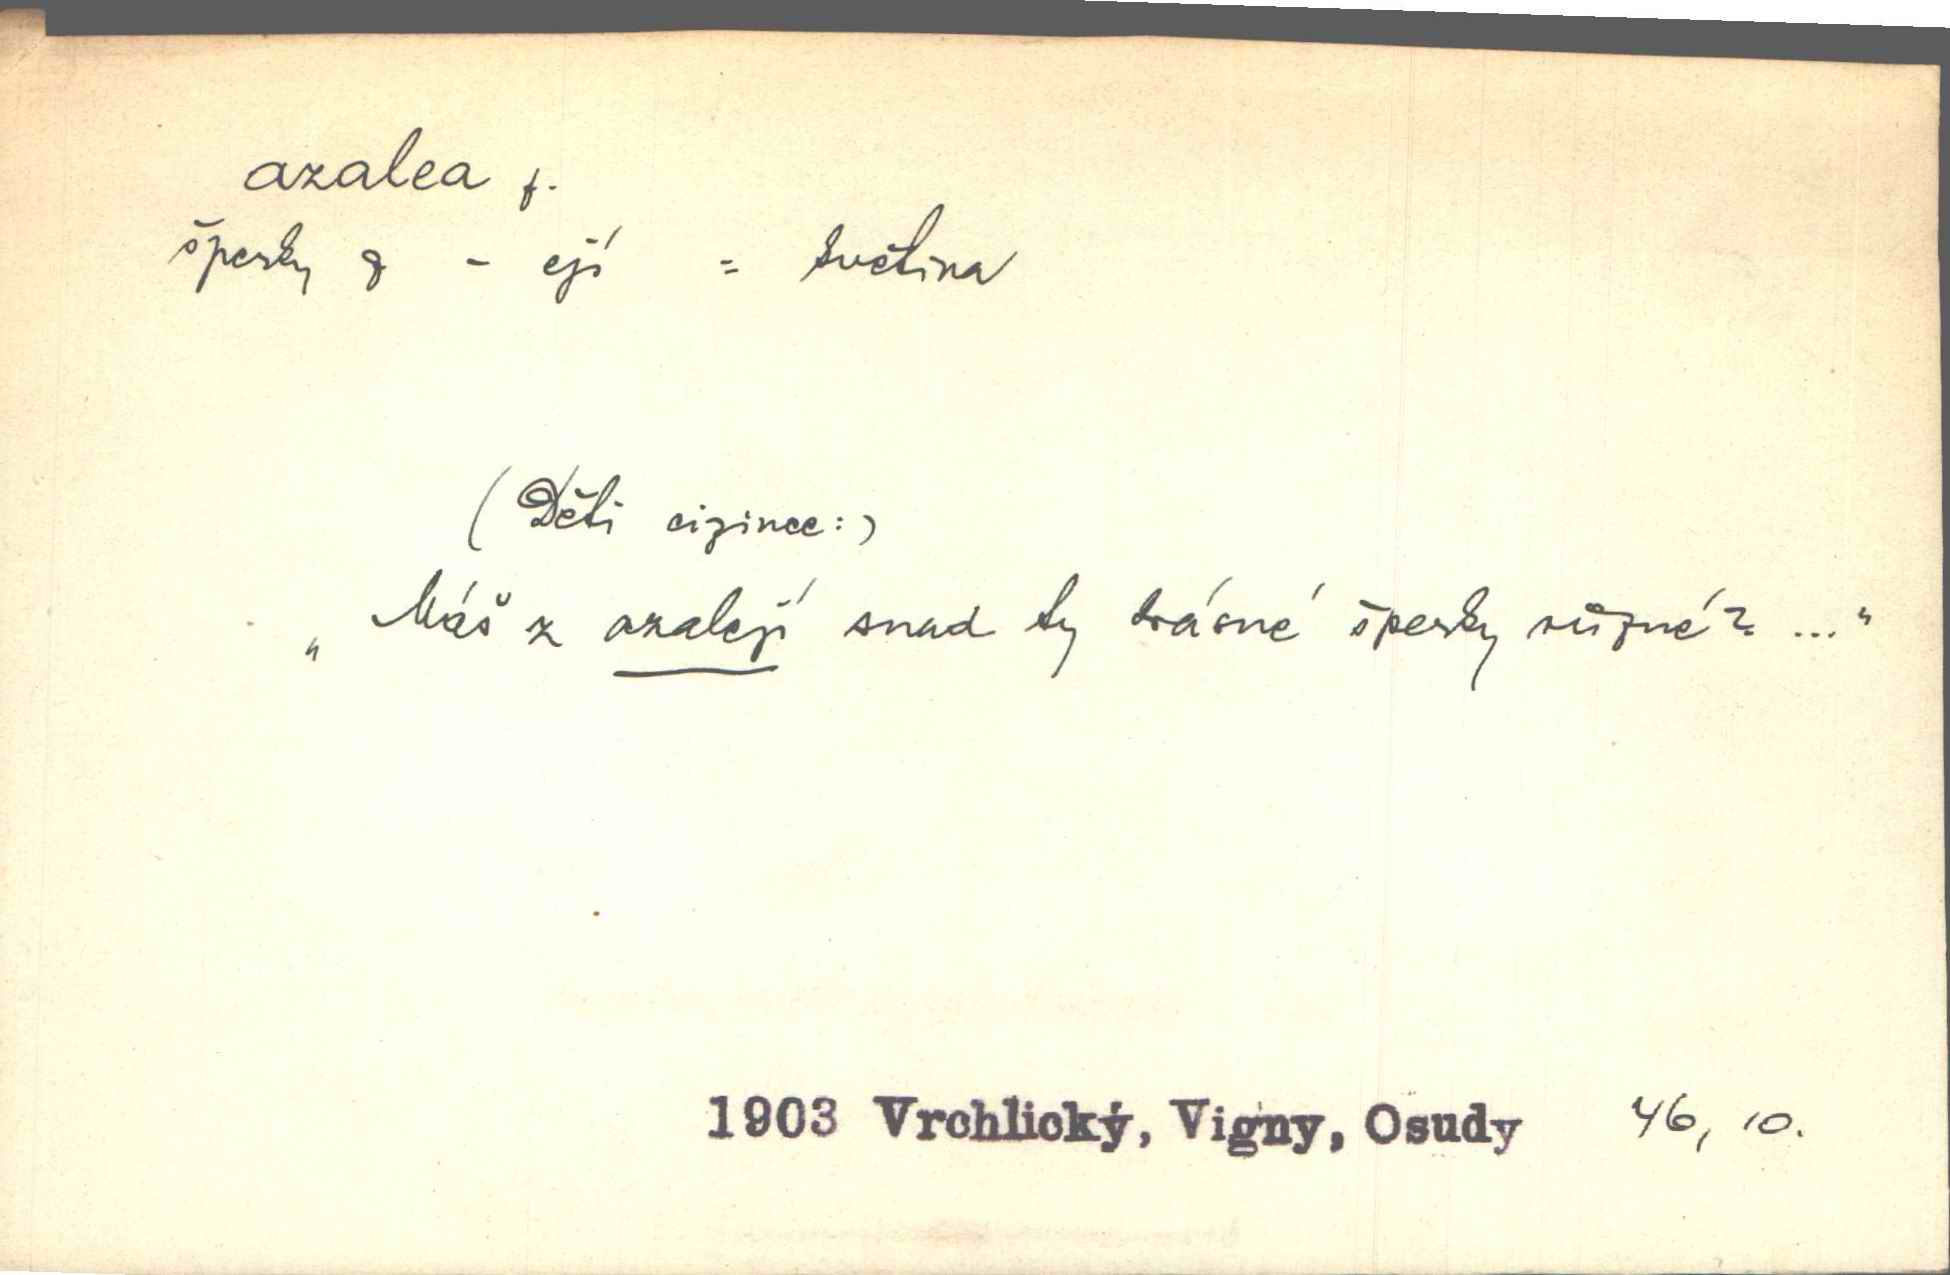 azalea f.
šperky z - ejí = květina
(Děti cizince:)
„Máš z azalejí snad ty krásné šperky různé? ..."
1903 Vrchlický, Vigny, Osudy 46, 10.